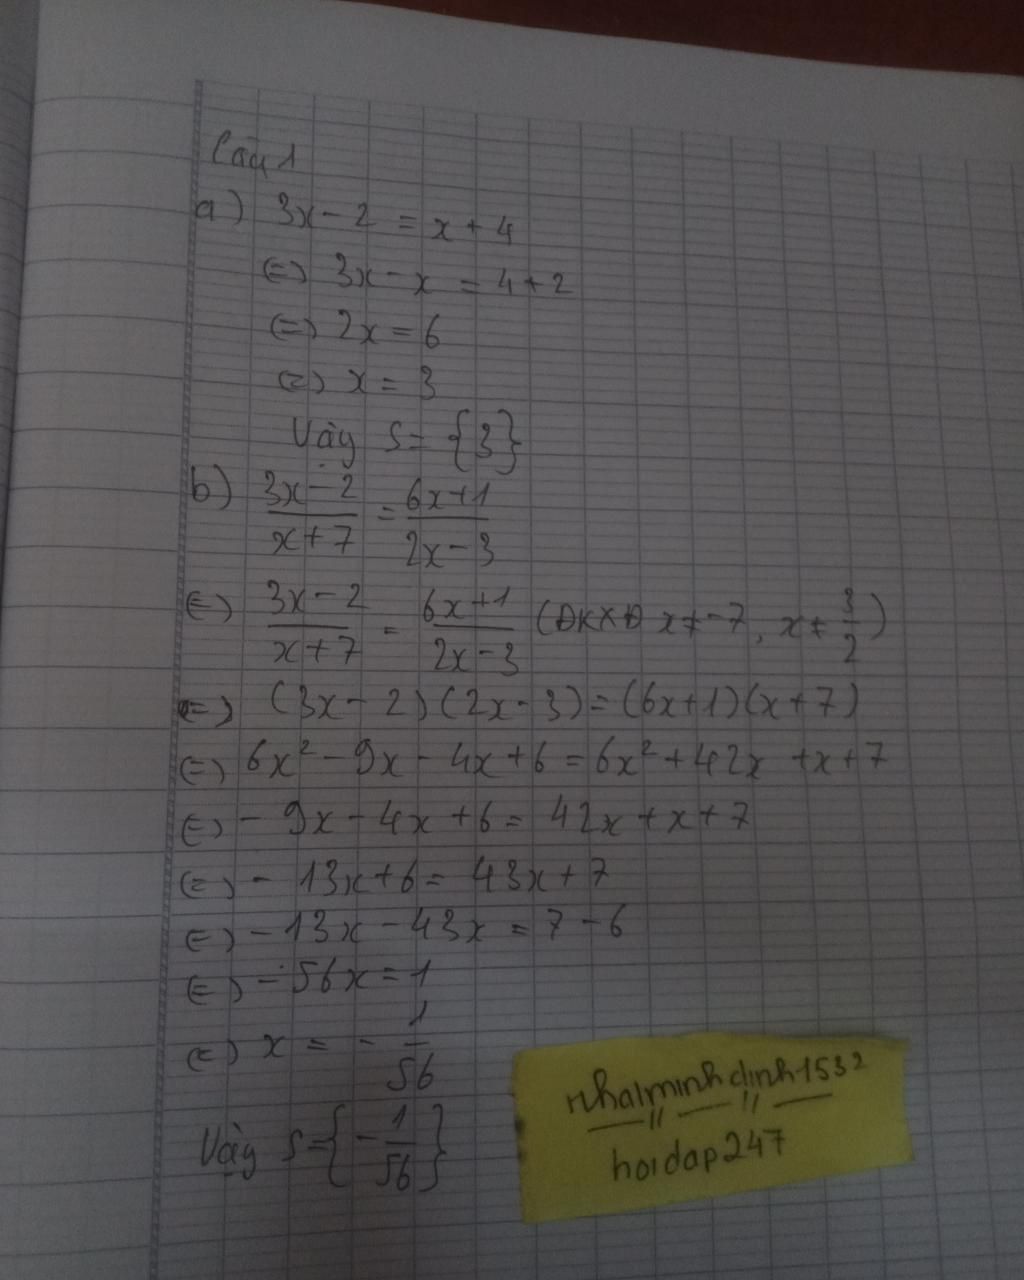 Câu 1
a) 3x - 2 = x + 4
(=) 3x - x = 4 + 2
(=) 2x = 6
(=) x = 3
Vậy S = {3}
b) \frac{3x-2}{x+7} = \frac{6x+1}{2x-3}
(=) \frac{3x-2}{x+7} = \frac{6x+1}{2x-3} (ĐKXĐ x ≠ -7, x ≠ \frac{3}{2})
(=) (3x - 2)(2x - 3) = (6x+1)(x+7)
(=) 6x² - 9x - 4x + 6 = 6x² + 42x + x + 7
(=) - 9x - 4x + 6 = 42x + x + 7
(=) - 13x + 6 = 43x + 7
(=) - 13x - 43x = 7 - 6
(=) - 56x = 1
(=) x = - \frac{1}{56}
Vậy S = {- \frac{1}{56}}
nhalminhdinh1532
hoidap247